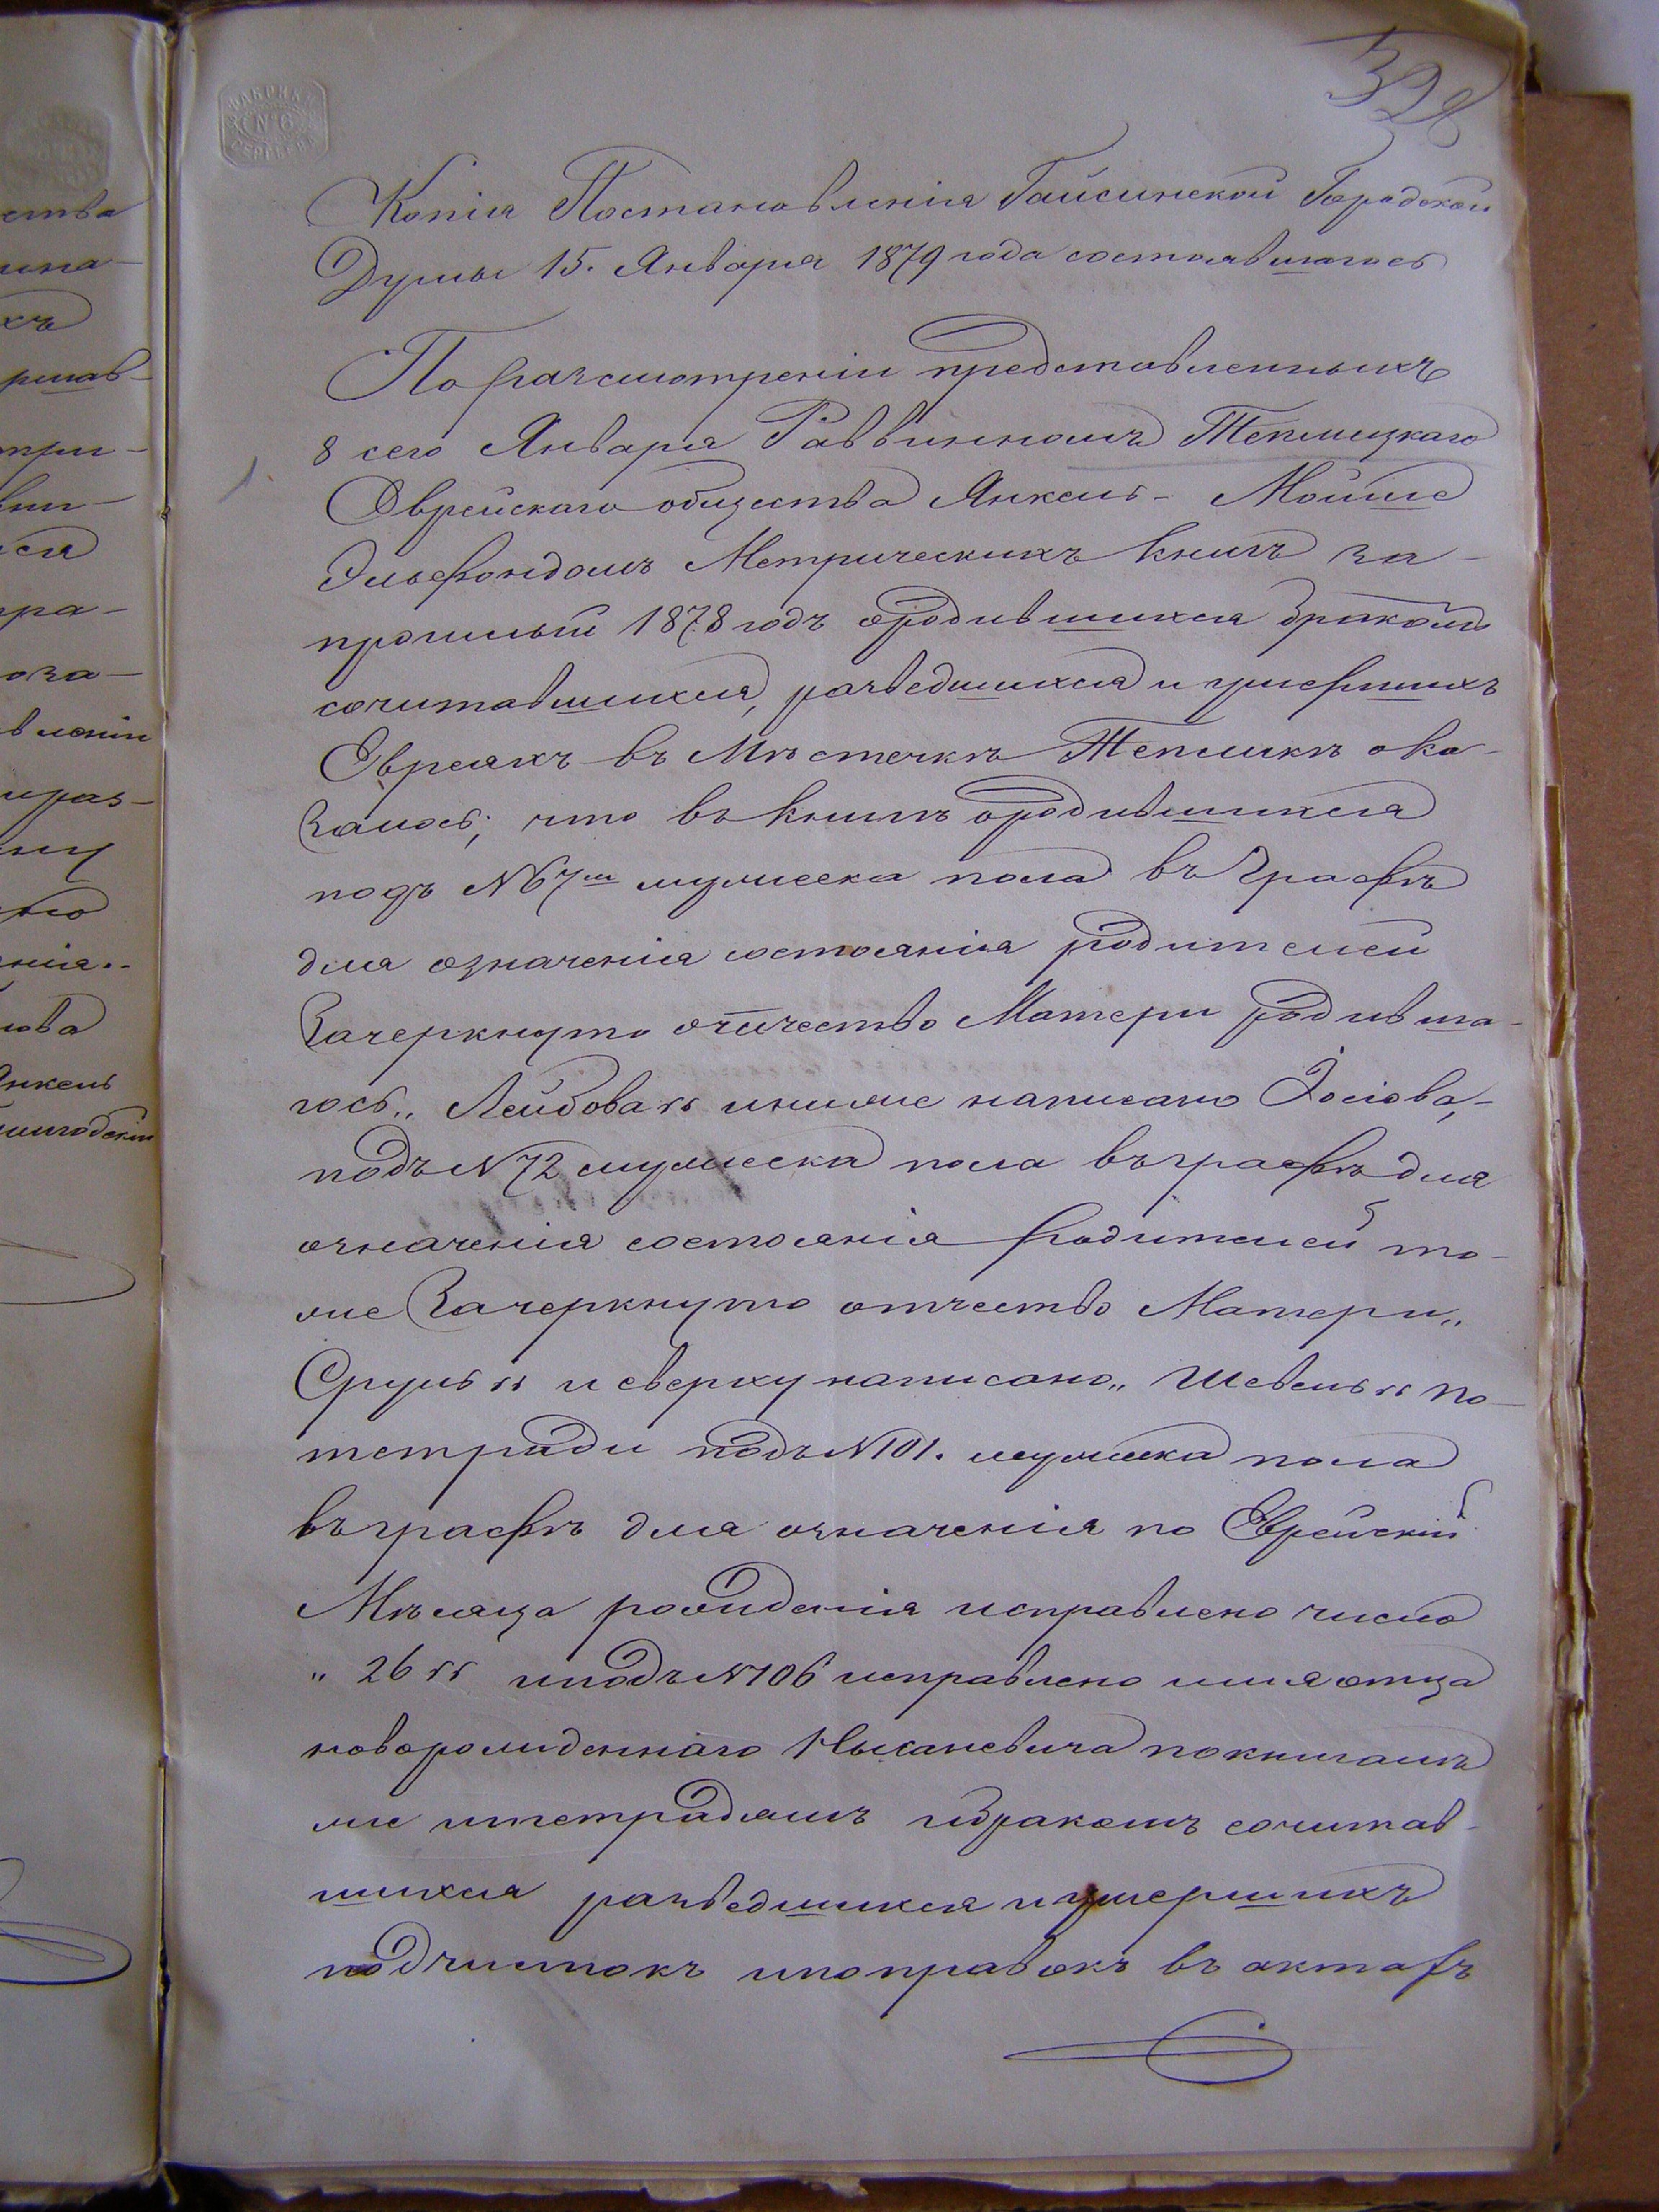 328
ФАБРИКИ
№ 6
СЕРГѢЕВА
Копія Постановленія Гайсинской Городской
Думы 15. Января 1879 года состоявшагось
По разсмотреніи представленныхъ
8 сего Января Раввинномъ Теплицкаго
Еврейскаго общества Янкель- Мойше
Эльфондомъ Метрическихъ книгъ за
прошлый 1878 годъ ородившихся бракомъ
сочитавшихся, разведшихся и умершихъ
Евреяхъ въ Мѣстечкѣ Тепликѣ ока-
залось, что въ книгѣ ородившихся
подъ N 67 мужеска пола въ графѣ
для означенія состоянія родителей
Зачеркнуто отчество Матери родивша-
гось „Лейбова“ иниже написано Іосіова,-
подъ N 72 мужеска пола въ графѣ для
означенія состоянія родителей то-
же Зачеркнуто отчество Матери „
Сруль“ и сверху написано „Шевель“ по-
тетради подъ N 101. мужеска пола
въ графѣ для означенія по Еврейскій
Мѣсяца рожденія исправлено число
„26“ и подъ N 106 исправлено имя отца
новорожденнаго Нысаневича по книгамъ
же и тетрадямъ о бракомъ сочитав-
шихся разведшихся и умершихъ
подчистокъ и поправокъ въ актахъ
ства
хъ
ся
ра-
оза-
вленіи
ову
нія.-
ова
Янкель